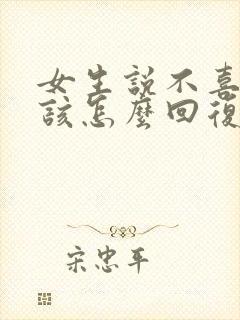 女生説不喜
該怎麼回復
宋忠平